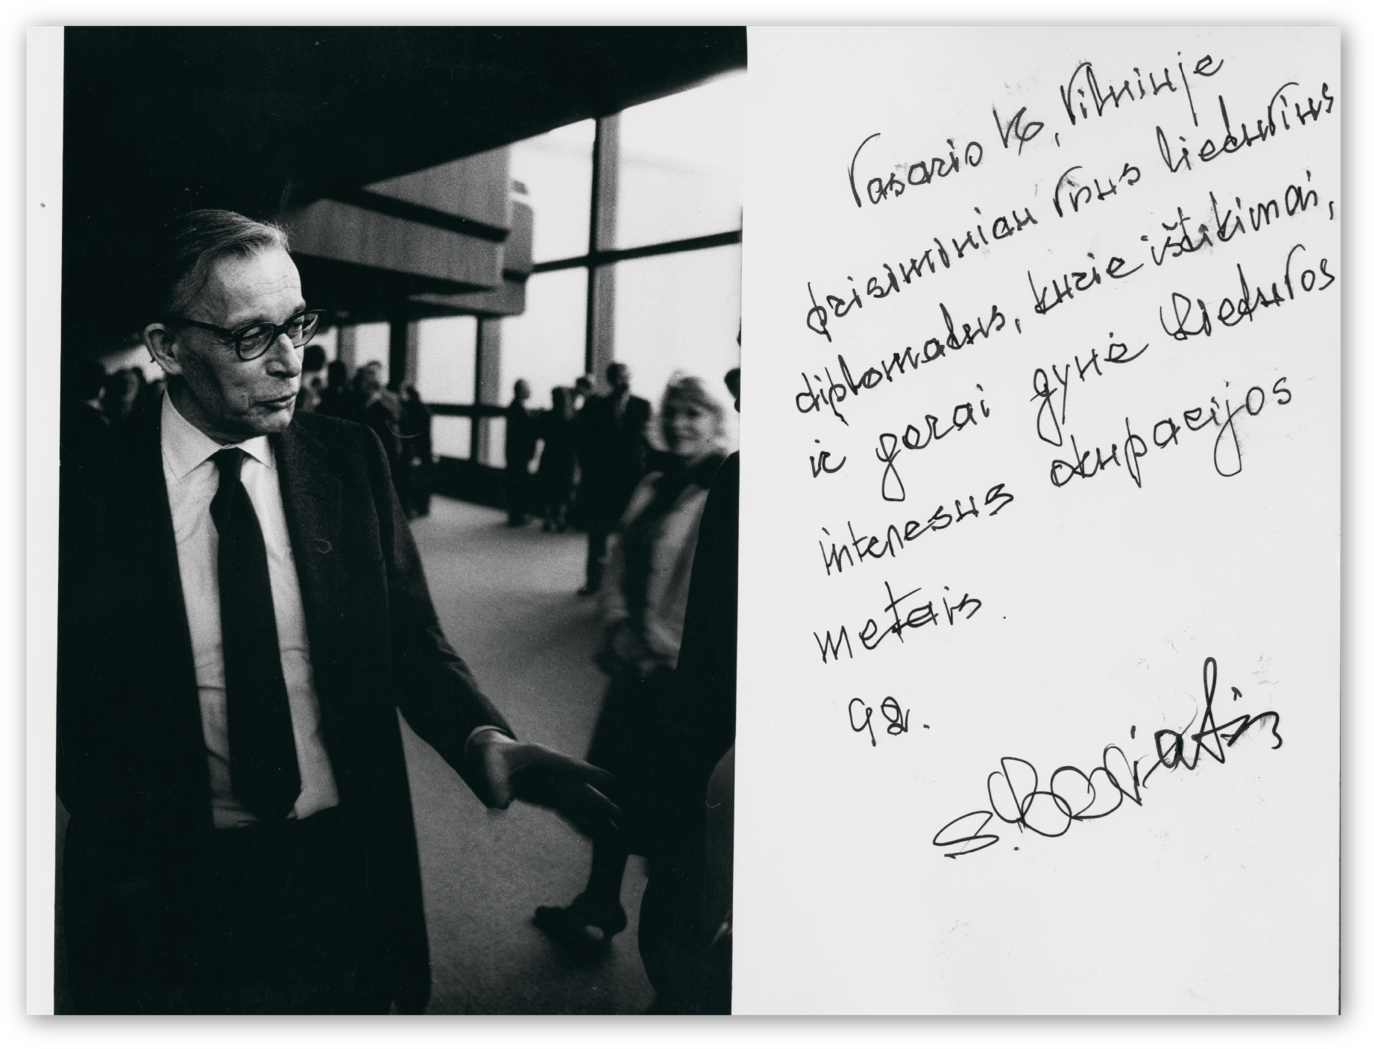 Vasario 16, Vilniuje
prisiminiau visus lietuvius
diplomatus, kurie ištikimai,
ir gerai gynė Lietuvos
interesus okupacijos
metais.
92.